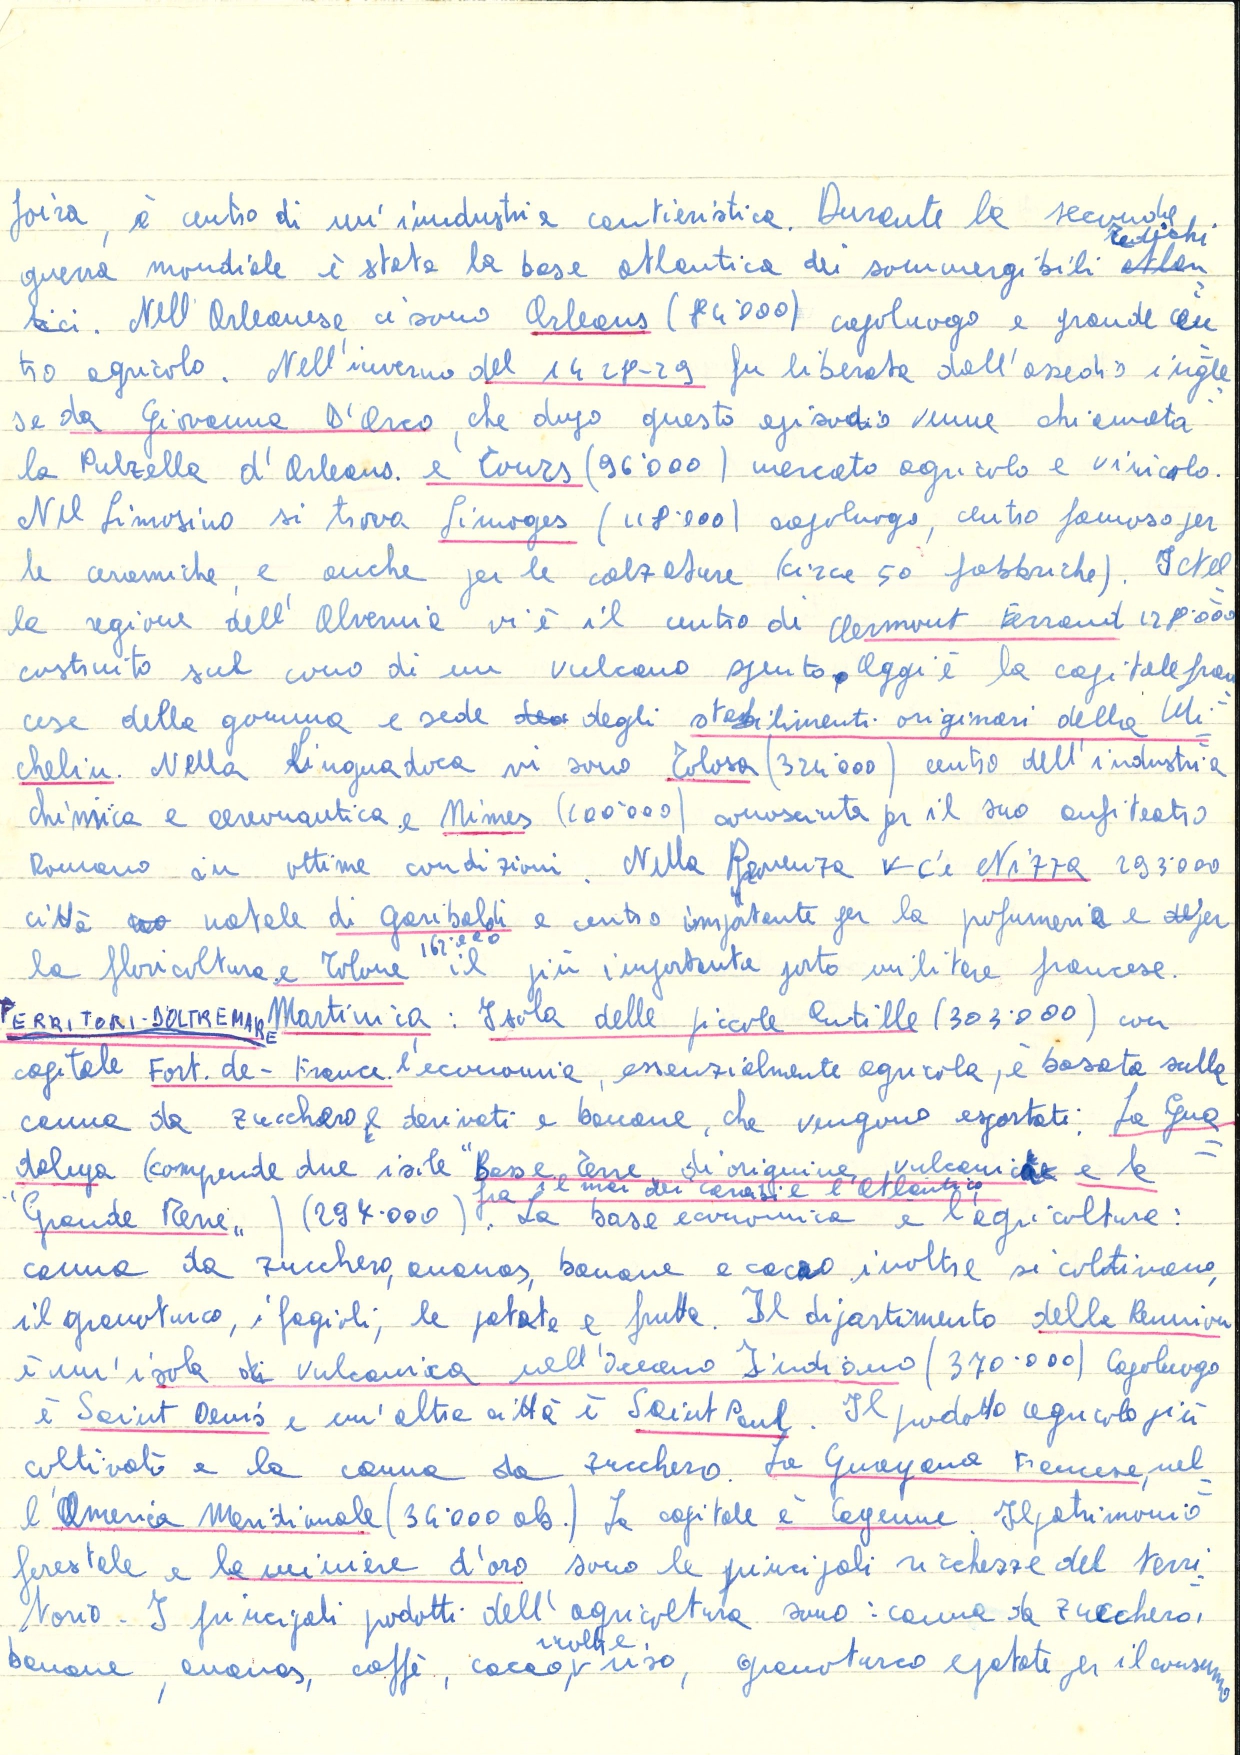 Loira, è centro di un'industria cantieristica. Durante la seconda
guerra mondiale è stata la base atlantica dei sommergibili tedeschi
Nell'Orleanese ci sono Orleans (84.000) capoluogo e grande cen=
tro agricolo. Nell'inverno del 1428-29 fu liberata dall'assedio ingle=
se da Giovanna D'Arco, che dopo questo episodio venne chiamata
la Pulzella d'Orleans. e Tours (96.000) mercato agricolo e vinicolo.
Nel Limosino si trova Limoges (118.000) capoluogo, centro famoso per
le ceramiche, e anche per le calzature (circa 50 fabbriche). Nel
la regione dell'Alvernia vi è il centro di Clermont Ferrand 128.000
costruito sul cono di un vulcano spento. Oggi è la capitale fran=
cese della gomma e sede degli stabilimenti originari della Mi=
chelin. Nella Linguadoca vi sono Tolosa (324.000) centro dell'industria
chimica e aereonautica e Nimes (100.000) conosciuta per il suo anfiteatro
Romano in ottime condizioni. Nella Provenza c'è Nizza 293.000
città natale di Garibaldi e centro importante per la profumeria e per
la floricoltura e Tolone 162.000 il più importante porto militare francese.
TERRITORI-D'OLTREMARE Martinica: Isola delle piccole Antille (303.000) con
capitale Fort-de-France. l'economia, essenzialmente agricola, è basata sulla
canna da zucchero e derivati e banane, che vengono esportati. La Gua=
dalupa (comprende due isole "Basse Terre di origine vulcanica e la
"Grande Terre") (294.000) fra il mar dei caraibi e l'Atlantico. La base economica e l'agricoltura:
canna da zucchero, ananas, banane e cacao inoltre si coltivano,
il granoturco, i fagioli, le patate e frutta. Il dipartimento della Reunion
è un'isola vulcanica nell'Oceano Indiano (370.000) Capoluogo
è Saint Denis e un'altra città è Saint Paul. Il prodotto agricolo più
coltivato e la canna da zucchero. La Guayana Francese, nel=
l'America Meridionale (34.000 ab.) La capitale è Cayenne. Il patrimonio
forestale e le miniere d'oro sono le principali ricchezze del terri=
torio. I principali prodotti dell'agricoltura sono: canna da zucchero,
banane, ananas, caffè, cacao, inoltre riso, granoturco e patate per il consumo